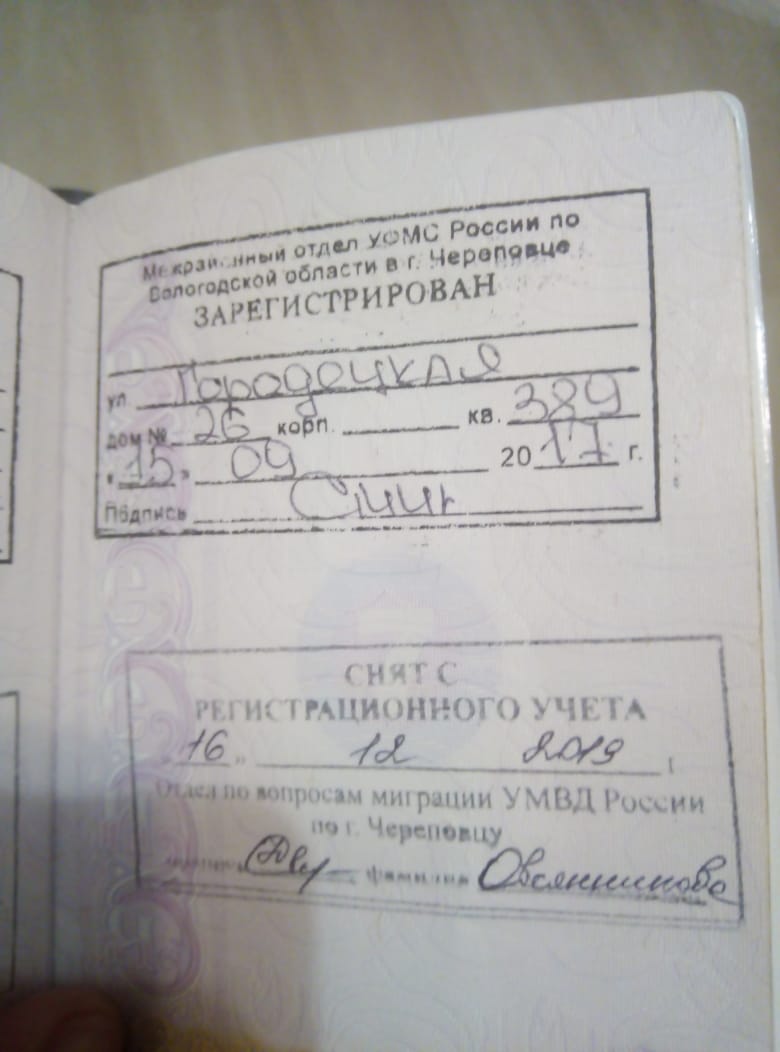 Межрайонный отдел УФМС России по
Вологодской области в г. Череповце
ЗАРЕГИСТРИРОВАН
ул. Городецкая
дом № 26 корп. кв. 389
"15" 09 2017 г.
Подпись
СНЯТ С
РЕГИСТРАЦИОННОГО УЧЕТА
"16" 12 2019 г.
Отдел по вопросам миграции УМВД России
по г. Череповцу
подпись фамилия Овсянникова